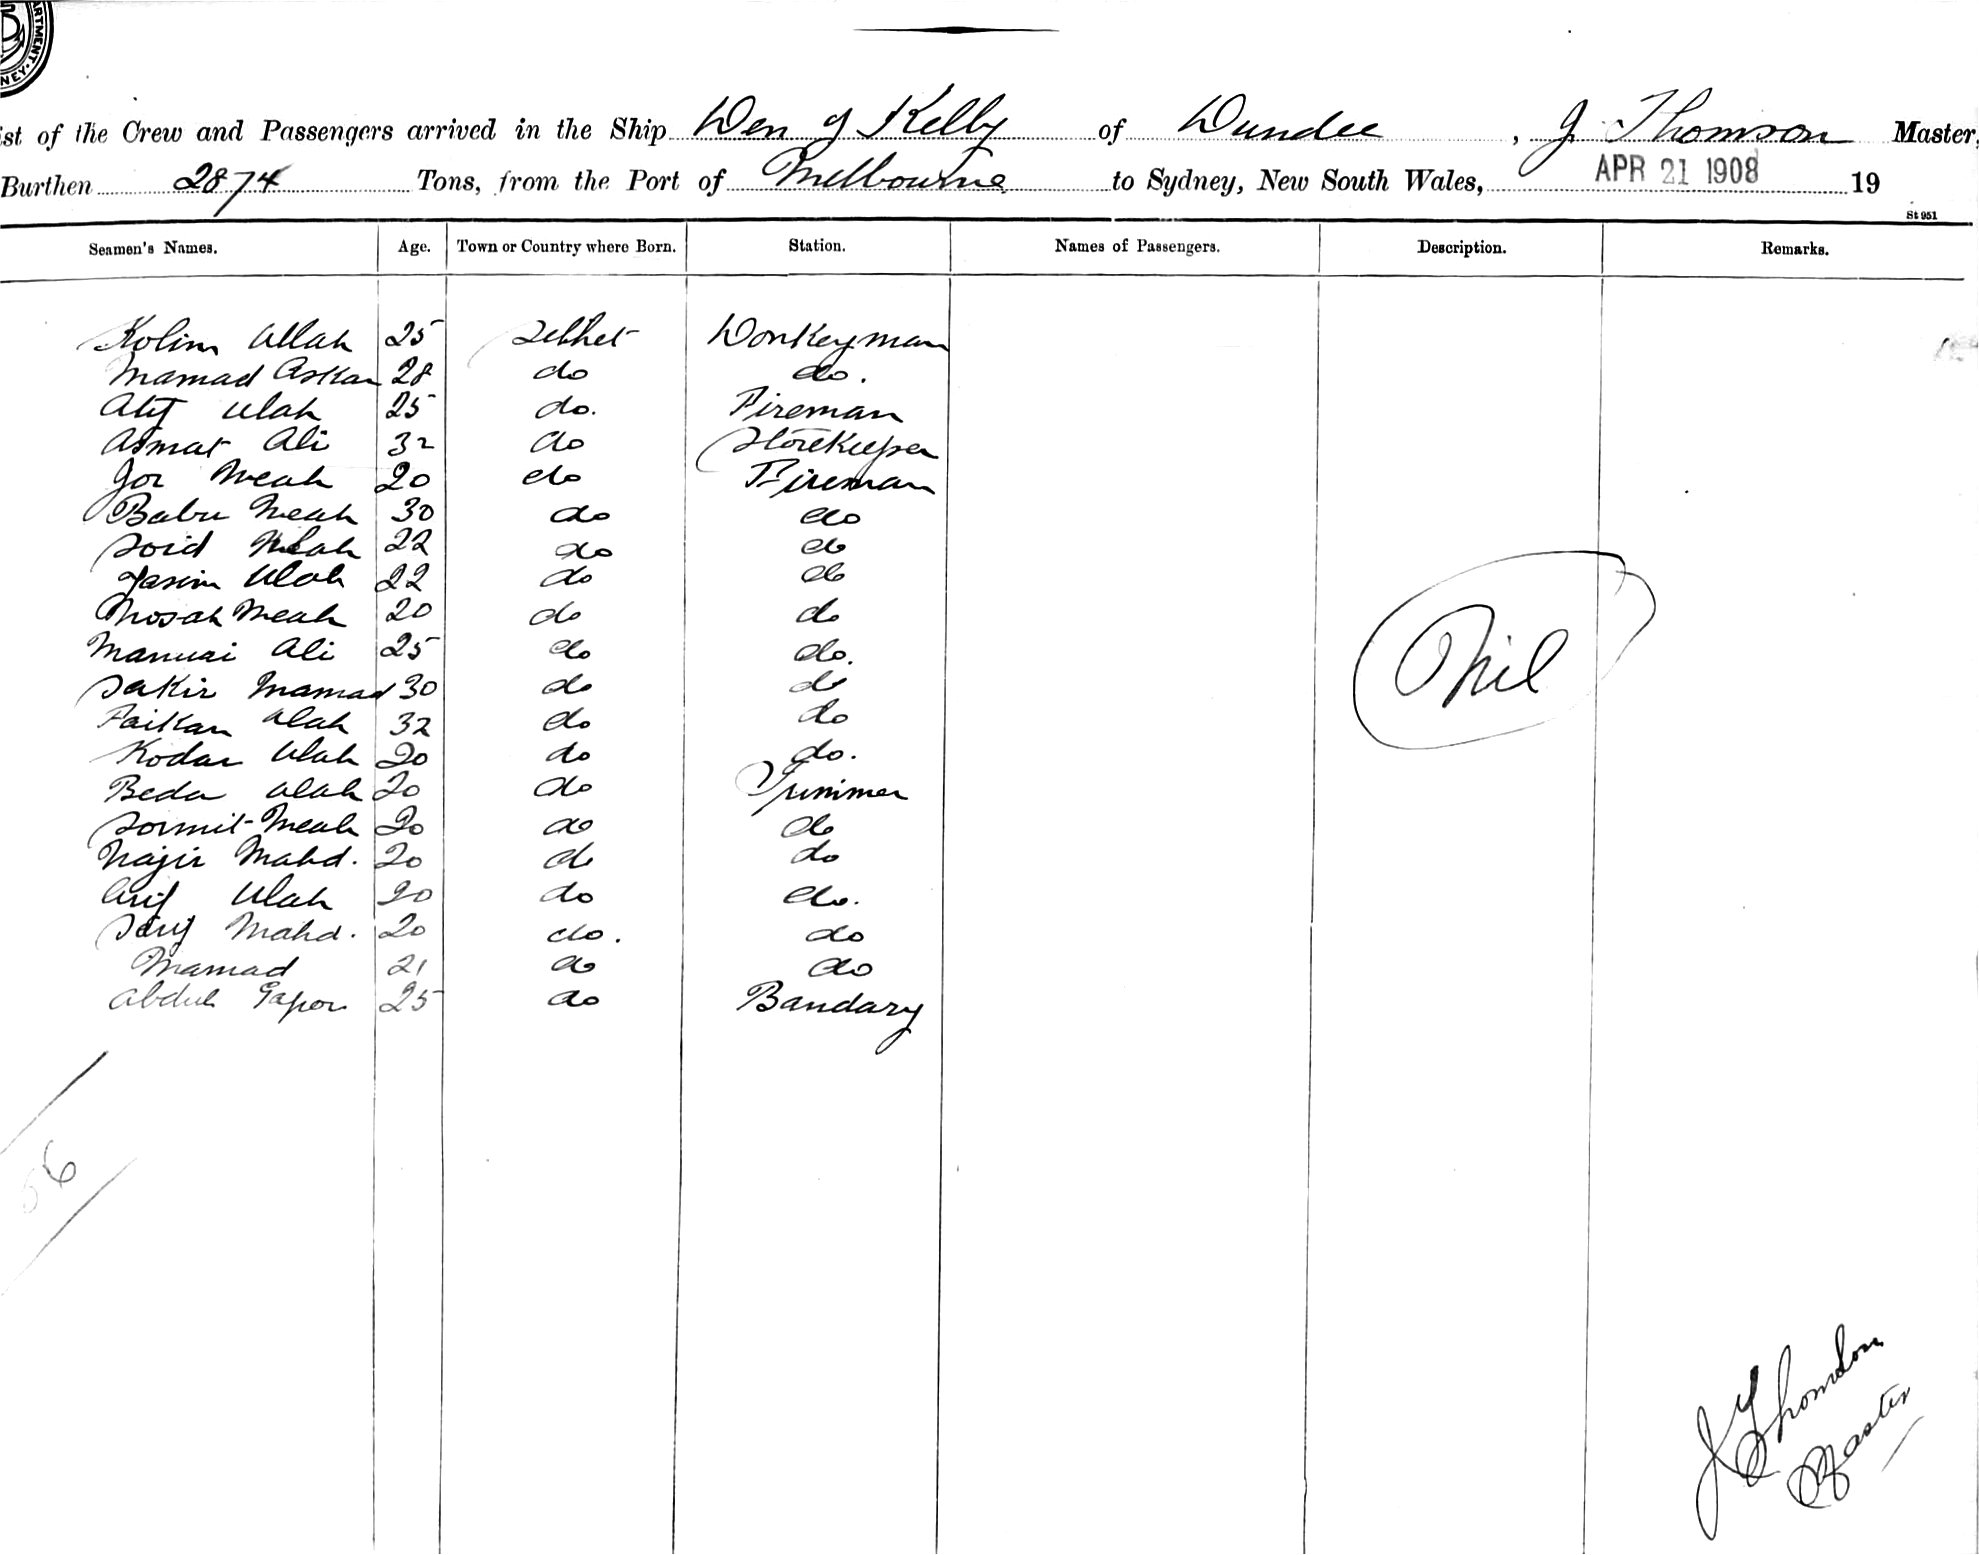 ARTMENT
NEY
ist of the Crew and Passengers arrived in the Ship Den of Kelly of Dundee , J Thomson Master,
Burthen 2874 Tons, from the Port of Melbourne to Sydney, New South Wales, APR 21 1908 19
St 951
Seamen's Names. Age. Town or Country where Born. Station. Names of Passengers. Description. Remarks.
Kolim Allah 25 Selhet Donkeyman
Mamad Askar 28 do do.
Atif Ulah 25 do. Fireman
Asmat Ali 32 do Storekeeper
Jor Meah 20 do Fireman
Babu Meah 30 do do
Soid Ulah 22 do do
Jasim Ulah 22 do do
Mosah Meah 20 do do
Ali 25 do do.
Sakir Mamad 30 do do
Faikan Ulah 32 do do
Kodar Ulah 20 do do.
Beda Ulah 20 do Trimmer
Sormit Meah 20 do do
Najir Mahd. 20 do do
Arif Ulah 20 do do.
Sarif Mahd. 20 do. do
Mamad 21 do do
Abdul Gapor 25 do Bandary
Nil
56
J Thomson
Master